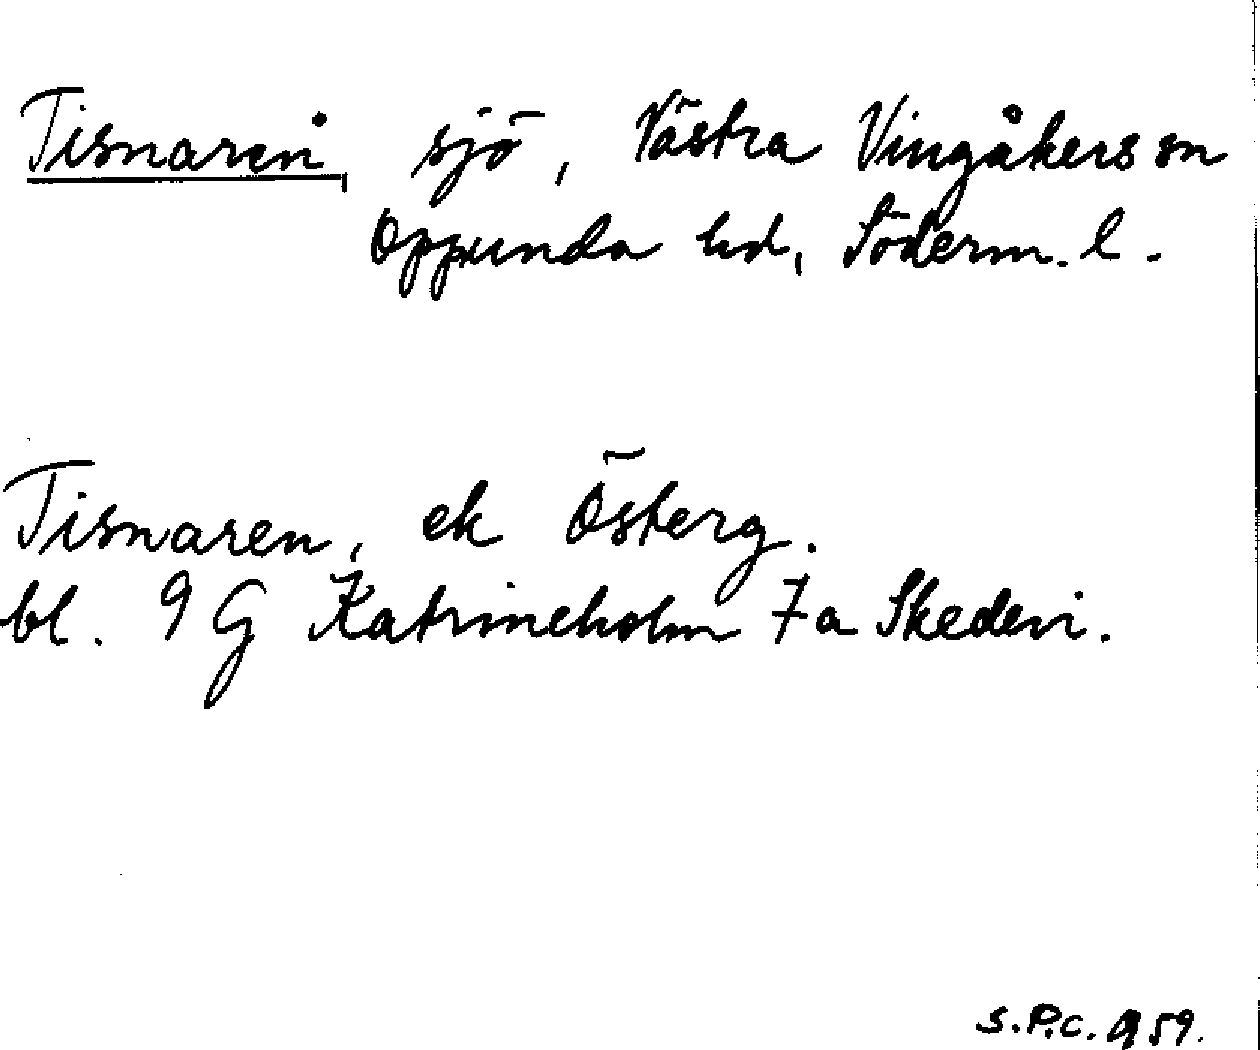 Tisnaren, sjö, Västra Vingåkers sn
Oppunda hd, Söderm. l.
Tisnaren, ek Österg.
bl. 9 G Katrineholm 7a Skedevi.
S.P.C. 959.